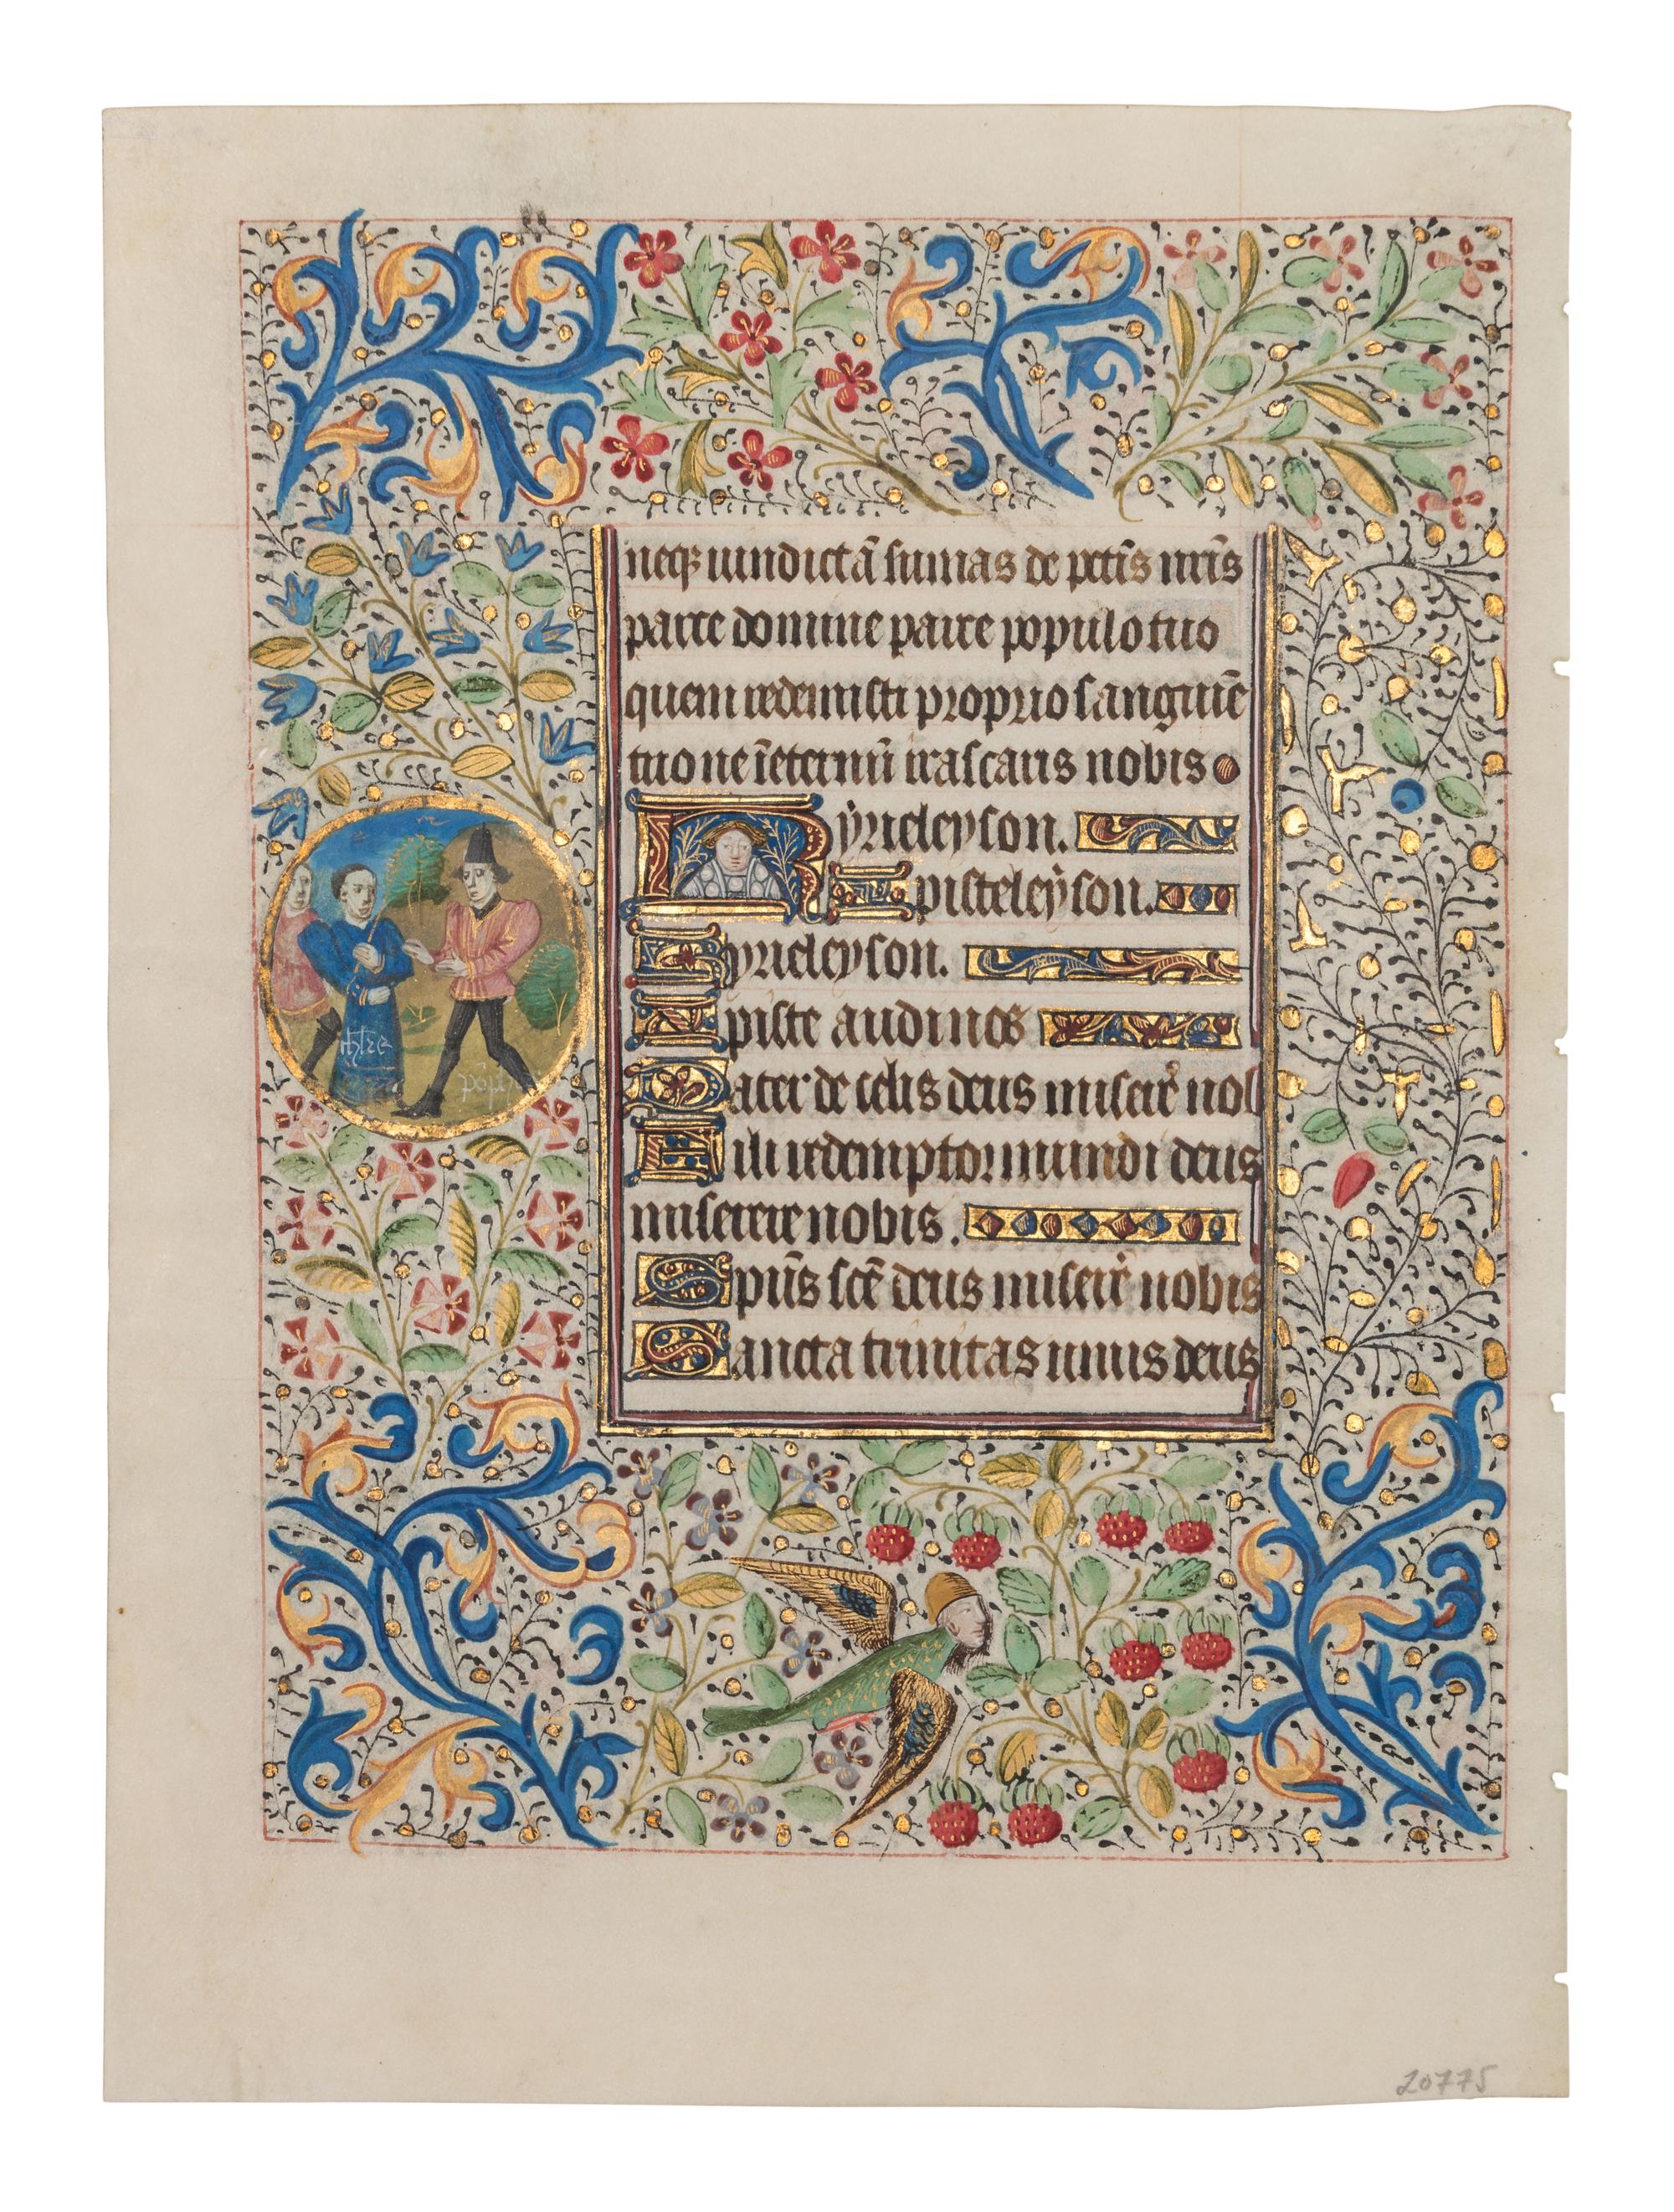 neqꝫ uindictā sumas de pctīs nrīs
parce domine parce populo tuo
quem redemisti proprio sanguīe
tuo ne īeternū irascaris nobis
Kyrieleyson.
Xpisteleyson.
Kyrieleyson.
Xpiste audi nos
Pater de celis deus miserē nob
Fili redemptor mundi deus
miserere nobis.
Spūs scē deus miserē nobis
Sancta trinitas unus deus
20775